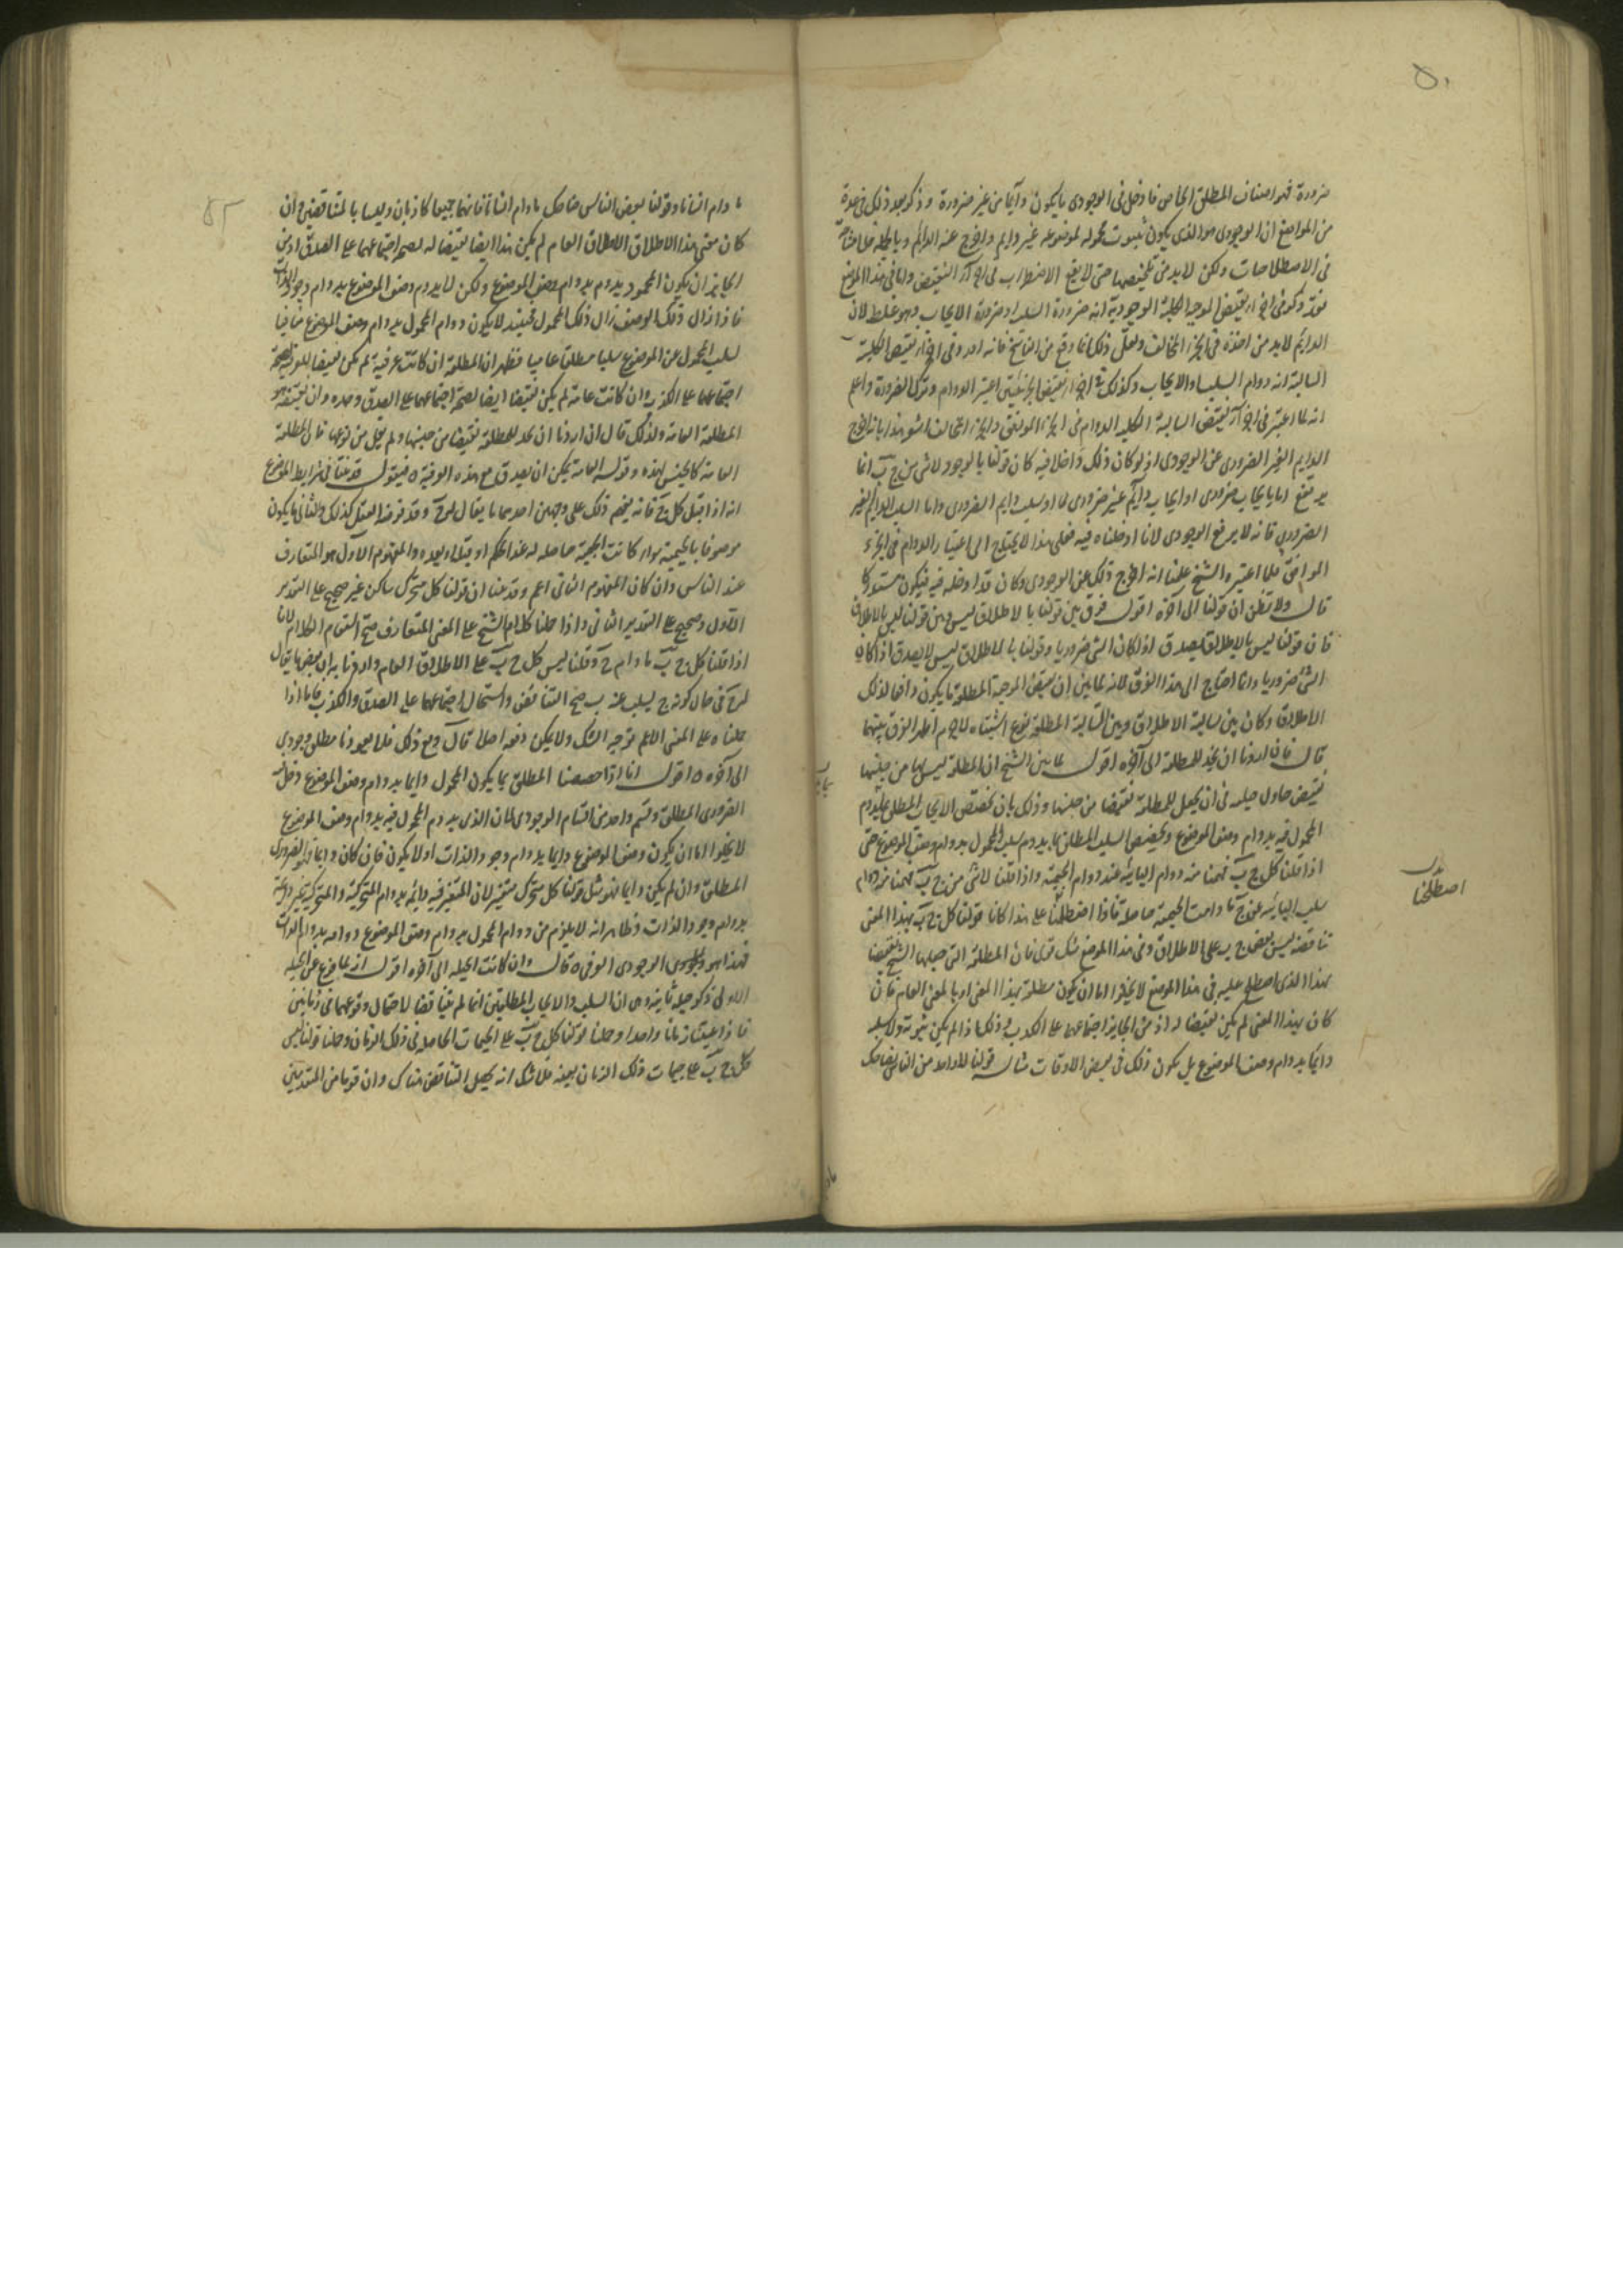 ضرورة فهو اصناف المطلق الخاص فادخل فى الوجودى ما يكون دآيما من غير ضرورة وذكر بعد ذلك فى عدة
من المواضع ان الوجودى هو الذى يكون ثبوت محموله لموضوعه غير دايم واخرج عنه الدائم وبالجملة فلا مشاحة
فى الاصطلاحات ولكن لابد من تلخيصها حتى لا يقع الاضطراب فى اجزآء النقيض واما فى هذا الموضع
فقد ذكر فى اجزاء نقيض الموجبة الكلية الوجودية انه ضرورة السلب او ضرورة الايجاب وهو غلط لان
الدائم لابد من اخذه فى الجزء المخالف ولعل ذلك انما وقع من الناسخ فانه اورد فى اجزاء نقيض الكلية
السالبة انه دوام السلب او الايجاب وكذلك فى اجزاء نقيض الجزئيتين اعتبر الدوام وترك الضرورة واعلم
انه لما اعتبر فى اجزآء نقيض السالبة الكلية الدوام فى الجزء الموافق والجزء المخالف اشعر هذا بانه اخرج
الدايم الغير الضرورى عن الوجودى اذ لو كان ذلك داخلا فيه كان قولنا بالوجود لا شى من ج ب انما
يرتفع اما بايجاب ضرورى او ايجاب دآيم غير ضرورى او سلب دايم الضرورى واما السلب الدايم الغير
الضرورى فانه لا يرفع الوجودى لانا ادخلناه فيه فعلى هذا لا يحتاج الى اعتبار الدوام فى الجزء
الموافق فلما اعتبره الشيخ علمنا انه اخرج ذلك عن الوجودى وكان قد ادخله فيه فيكون مستدركا
قال ولا تظن ان قولنا الى آخره اقول فرق بين قولنا بالاطلاق ليس وبين قولنا ليس بالاطلاق
فان قولنا ليس بالاطلاق يصدق اذا كان الشى ضروريا وقولنا بالاطلاق ليس لا يصدق اذا كان
الشى ضروريا وانما احتاج الى هذا الفرق لانه لما بين ان نقيض الموجبة المطلقة ما يكون دافعا لذلك
الاطلاق وكان بين سالبة الاطلاق وبين السالبة المطلقة نوع اشتباه لا جرم اظهر الفرق بينهما
قال فان اردنا ان نجد للمطلقة الى آخره اقول لما بين الشيخ ان المطلقة ليس لها من جنسها
نقيض حاول حيلة فى ان يجعل للمطلقة نقيضا من جنسها وذلك بان نخصص الايجاب المطلق بما يدوم
المحمول فيه بدوام وصف الموضوع ونخصص السلب المطلق بما يدوم سلب المحمول بدوام وصف الموضوع حتى
اذا قلنا كل ج ب فهمنا منه دوام البائية عند دوام الجيمية واذا قلنا لا شى من ج ب فهمنا منه دوام
سلب البائية عن ج ما دامت الجيمية حاصلة فاذا اصطلحنا على هذا كانا قولنا كل ج ب بهذا المعنى
تناقضه ليس بعض ج ب على الاطلاق وفى هذا الموضع شك قوى فان المطلقة التى جعلها الشيخ نقيضا
بهذا الذى اصطلح عليه فى هذا الموضع لا يخلوا اما ان يكون مطلقة بهذا المعنى او بالمعنى العام فان
كان بهذا المعنى لم يكن نقيضا له اذ من الجايز اجتماعهما على الكذب وذلك اذا لم يكن ثبوته ولا سلبه
دايما بدوام وصف الموضوع بل يكون ذلك فى بعض الاوقات مثاله قولنا لا واحد من الناس بضاحك
اصطلحنا
ما دام انسانا وقولنا بعض الناس ضاحك ما دام انسانا فانهما جميعا كاذبان وليسا بالمتناقضين وان
كان معنى هذا الاطلاق الاطلاق العام لم يكن هذا ايضا نقيضا له لصحة اجتماعهما على الصدق اذ من
الجايز ان يكون المحمول يدوم بدوام وصف الموضوع ولكن لا يدوم وصف الموضوع بدوام وجود الذات
فاذا زال ذلك الوصف زال ذلك المحمول فحينئذ لا يكون دوام المحمول بدوام وصف الموضوع منافيا
لسلب المحمول عن الموضوع سلبا مطلقا عاميا فظهر ان المطلقة ان كانت عرفية لم يكن نقيضا للعرفية لصحة
اجتماعهما على الكذب وان كانت عامة لم يكن نقيضا ايضا لصحة اجتماعهما على الصدق وحده وان نقيضه هو
المطلقة العامة ولذلك قال ان اردنا ان نجد للمطلقة نقيضا من جنسها ولم يقل من نوعها فان المطلقة
العامة كالجنس لهذه وقوله العامة يمكن ان يصدق مع هذه العرفية فيقول قد بينا فى شرايط الموضوع
انه اذا قيل كل ج فانه يفهم ذلك على وجهين احدهما ما يقال له ج وقد فرضه العقل كذلك والثانى ما يكون
موصوفا بالجيمية سواء كانت الجيمية حاصلة له عند الحكم او قبله او بعده والمفهوم الاول هو المتعارف
عند الناس وان كان المفهوم الثانى اعم وقد علمنا ان قولنا كل متحرك ساكن غير صحيح على التقدير
الاول وصحيح على التقدير الثانى واذا حملنا كلام الشيخ على المعنى المتعارف صح استقام الكلام لانا
اذا قلنا كل ج ب ما دام ج وقلنا ليس كل ج ب على الاطلاق العام واردنا به ان بعض ما يقال
له ج فى حال كونه ج يسلب عنه ب صح التناقض واستحال اجتماعهما على الصدق والكذب فاما اذا
حملناه على المعنى الاعم توجه الشك ولا يمكن دفعه اصلا قال ومع ذلك فلا يعوزنا مطلق وجودى
الى آخره اقول انا اذا خصصنا المطلق بما يكون المحمول دايما بدوام وصف الموضوع دخل فيه
الضرورى المطلق وقسم واحد من اقسام الوجودى لان الذى يدوم المحمول فيه بدوام وصف الموضوع
لا يخلوا اما ان يكون وصف الموضوع دايما بدوام وجود الذات او لا يكون فان كان دايما فهو الضرورى
المطلق وان لم يكن دايما فهو مثل قولنا كل متحرك متغير لان المتغير فيه دائم بدوام المتحركية والمتحركية غير دائمة
بدوام وجود الذات وظاهر انه لا يلزم من دوام المحمول بدوام وصف الموضوع دوامه بدوام الذات
فهذا هو الوجودى العرفى قال وان كانت الحيلة الى آخره اقول انه لما فرغ عن الحيلة
الاولى ذكر حيلة ثانية وهى ان السلب والايجاب المطلقين انما لم يتناقضا لاحتمال وقوعهما فى زمانين
فاذا عينا زمانا واحدا وحملنا قولنا كل ج ب على الجيمات الحاصلة فى ذلك الزمان وحملنا قولنا ليس
كل ج ب على جيمات ذلك الزمان بعينه فلا شك انه يحصل التناقض هناك وان قوما من المتقدمين